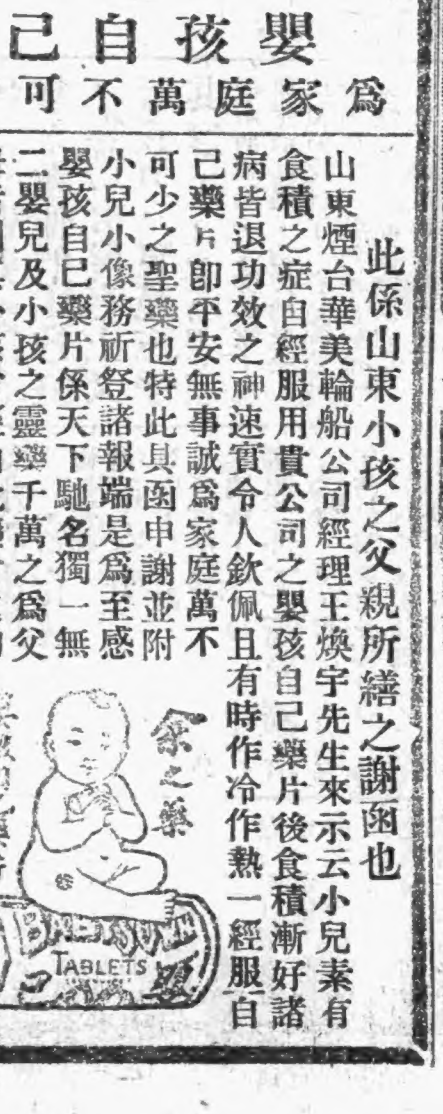 嬰孩自己
為家庭萬不可
此係山東小孩之父親所繕之謝函也
山東煙台華美輪船公司經理王煥宇先生來示云小兒素有
食積之症自經服用貴公司之嬰孩自己藥片後食積漸好諸
病皆退功效之神速實令人欽佩且有時作冷作熱一經服自
己藥片卽平安無事誠爲家庭萬不
可少之聖藥也特此具函申謝並附
小兒小像務祈登諸報端是爲至感
嬰孩自己藥片係天下馳名獨一無
二嬰兒及小孩之靈藥千萬之爲父
余之藥
TABLETS